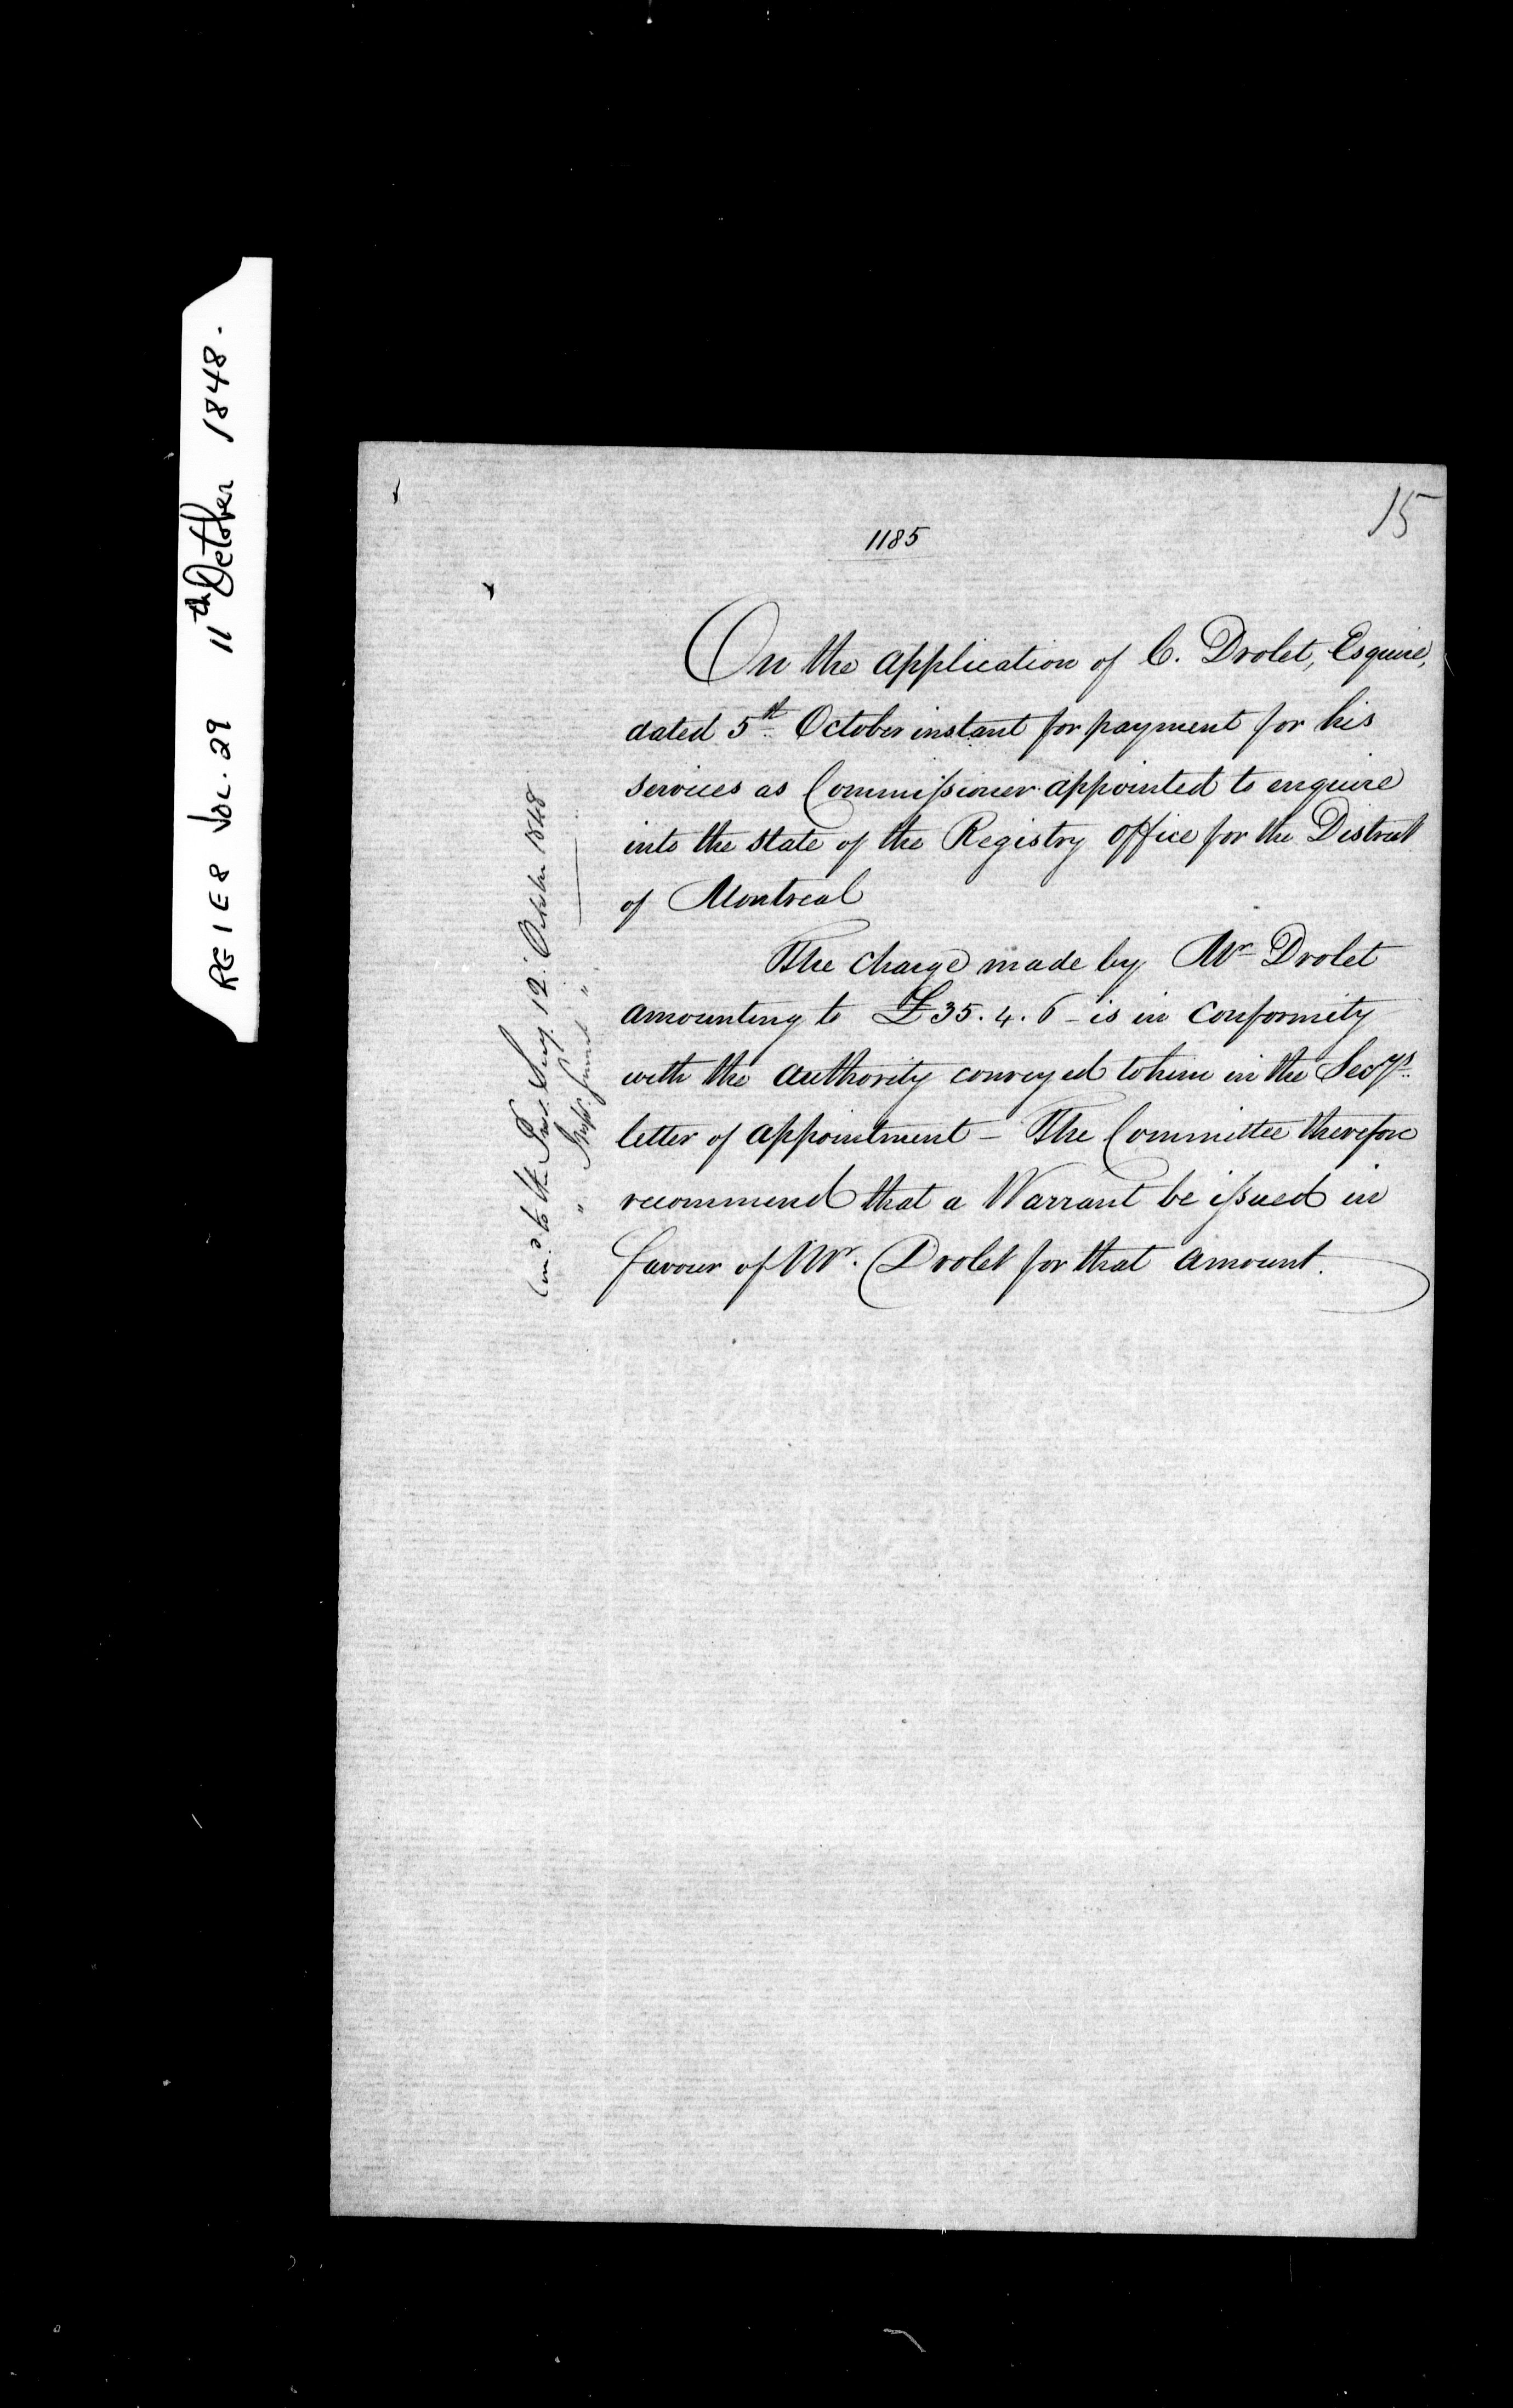 RG 1 E 8 VOL. 29 11th October 1848.
15
1185
On the application of C. Drolet, Esquire,
dated 5th October instant for payment for his
services as Commissioner appointed to enquire
into the state of the Registry Office for the District
of Montreal
The charge made by Mr Drolet
amounting to £35. 4. 6 - is in conformity
with the authority conveyed to him in the Secys
letter of appointment - The Committee therefore
recommend that a Warrant be issued in
favour of Mr. Drolet for that amount.
to the Secy. 12. October 1848
" Genl. "